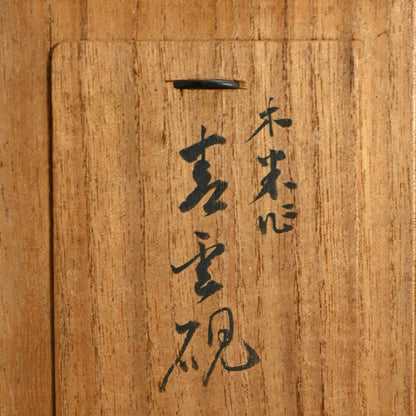 木米作
青雲硯